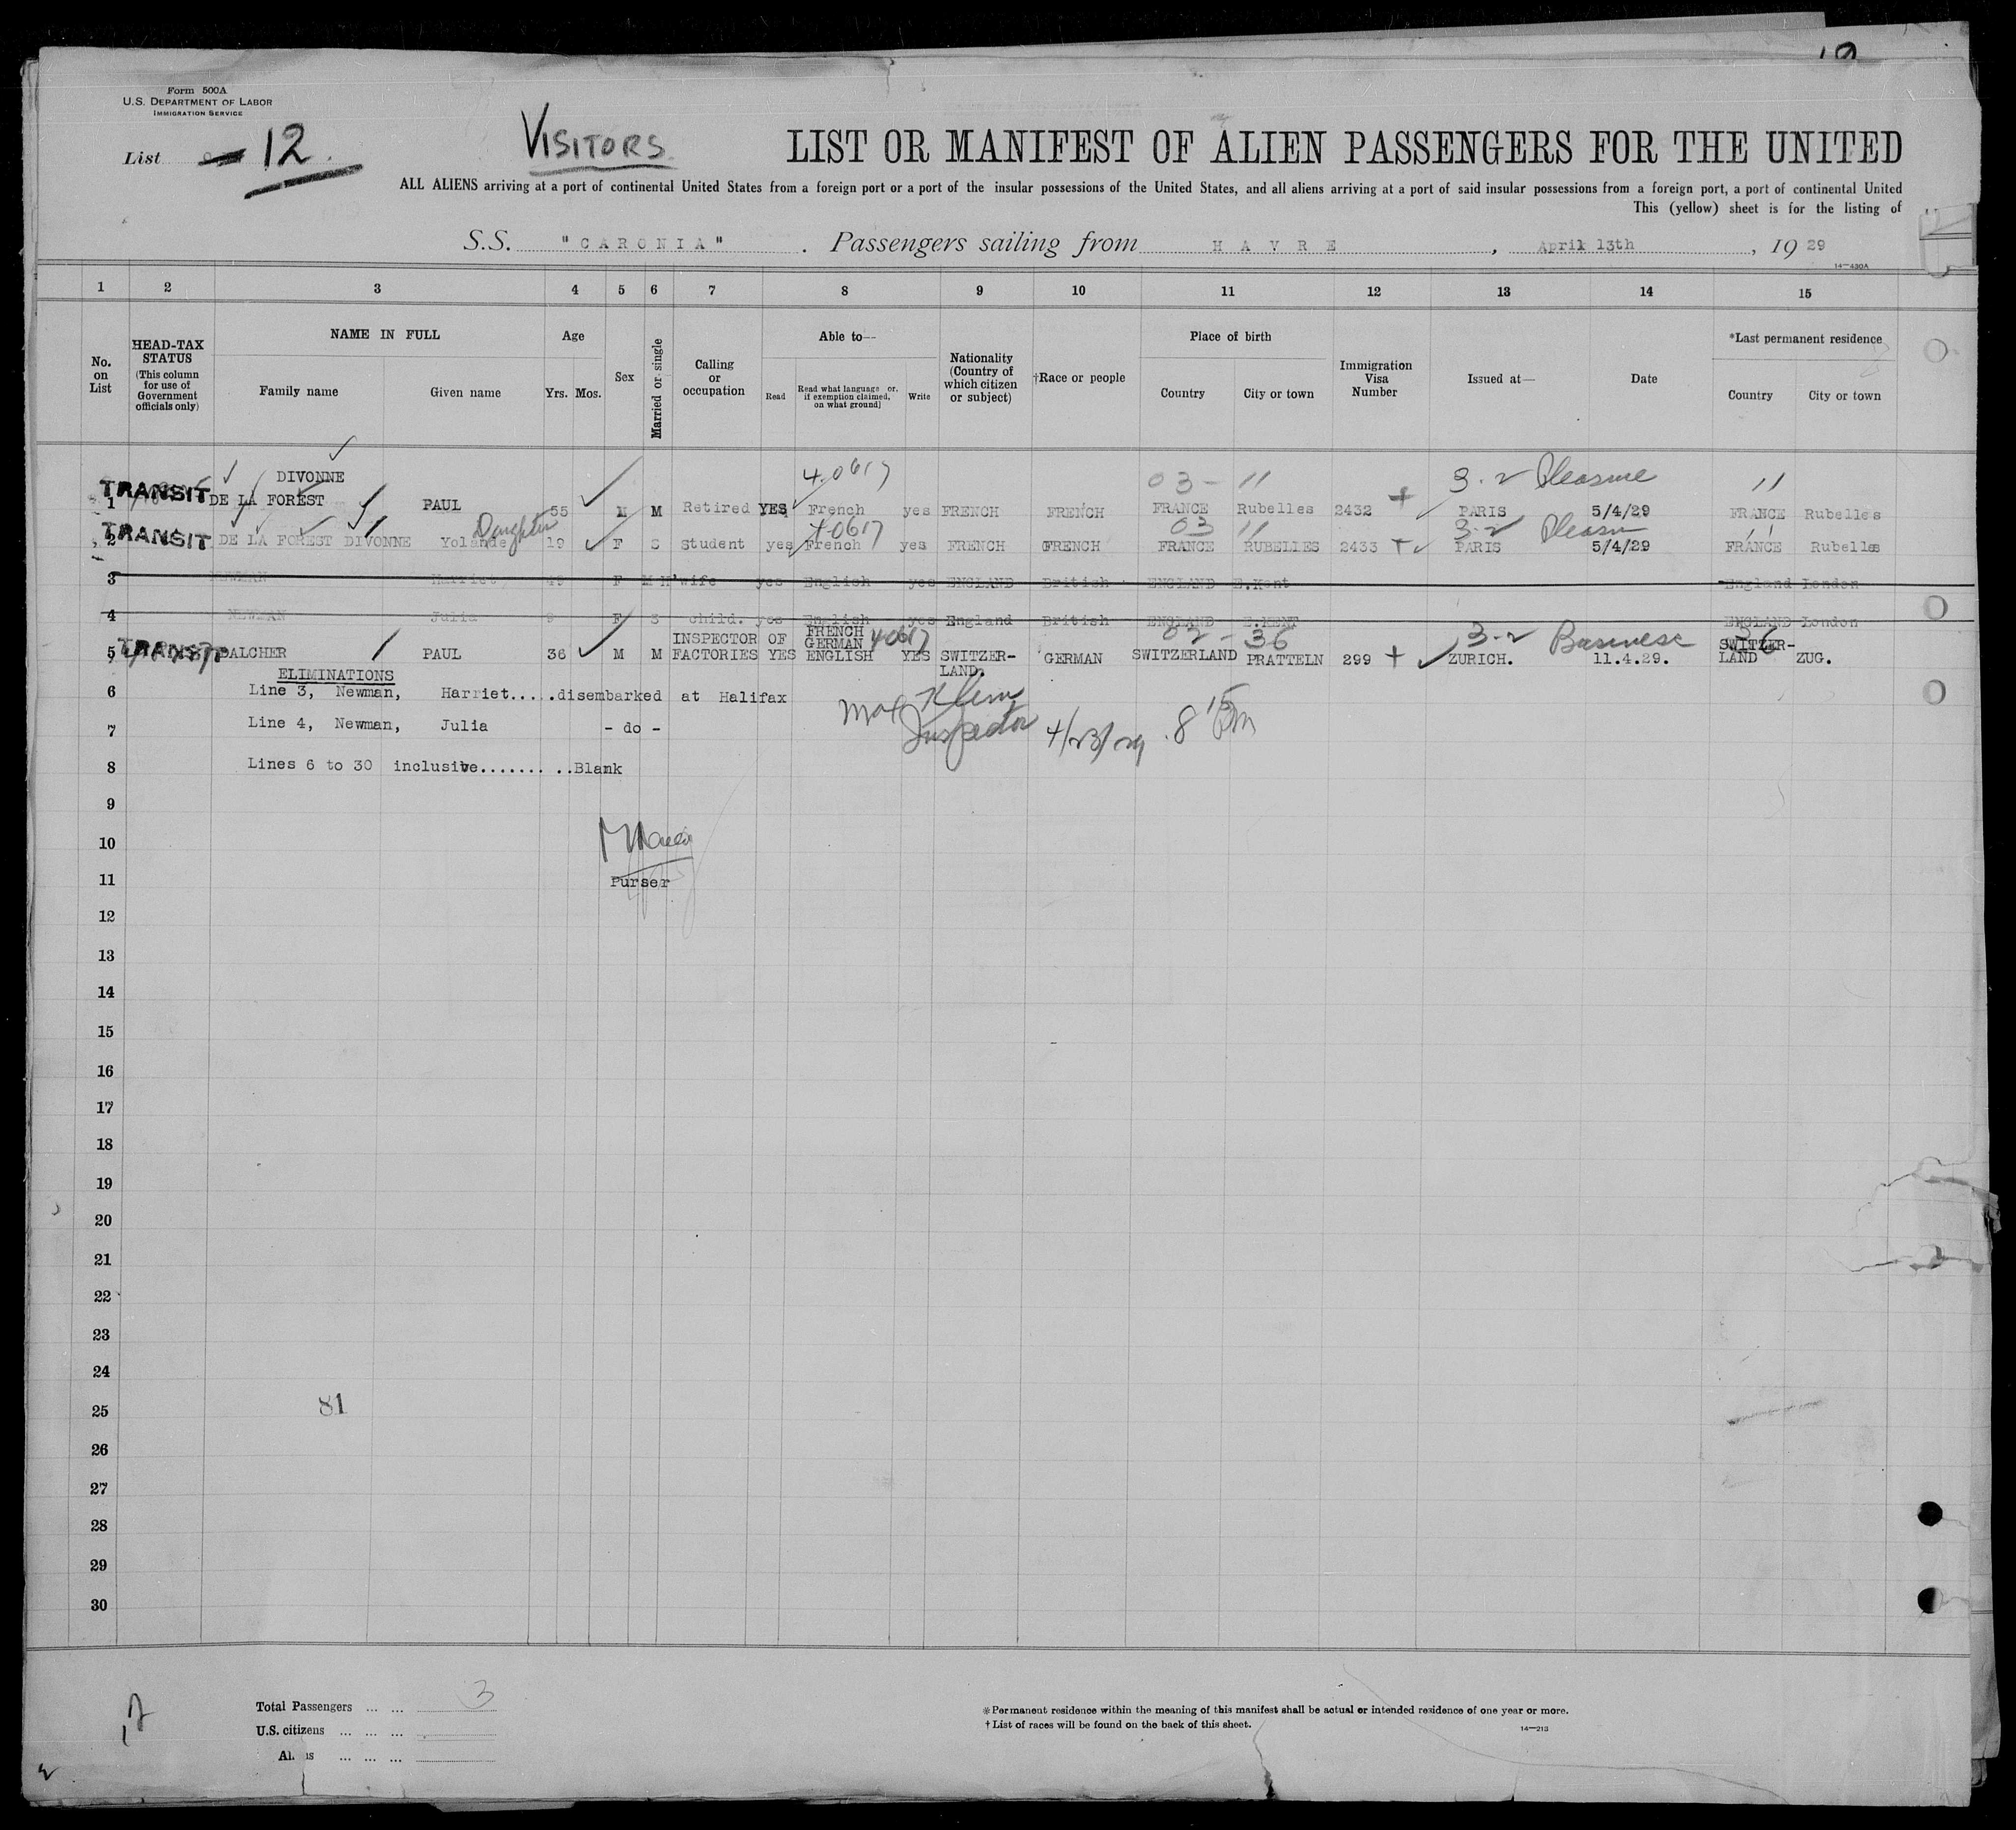 Form 500A
U.S. DEPARTMENT OF LABOR
IMMIGRATION SERVICE
List 12.
VISITORS
LIST OR MANIFEST OF ALIEN PASSENGERS FOR THE UNITED
ALL ALIENS arriving at a port of continental United States from a foreign port or a port of the insular possessions of the United States, and all aliens arriving at a port of said insular possessions from a foreign port, a port of continental United
This (yellow) sheet is for the listing of
S.S. "CARONIA". Passengers sailing from HAVRE, April 13th, 1929
14—430A
1 2 3 4 5 6 7 8 9 10 11 12 13 14 15
No. on List
HEAD-TAX STATUS (This column for use of Government officials only)
NAME IN FULL
Family name
Given name
Age
Yrs. Mos.
Sex
Married or single
Calling or occupation
Able to—
Read
Read what language or, if exemption claimed, on what ground)
Write
Nationality (Country of which citizen or subject)
†Race or people
Place of birth
Country
City or town
Immigration Visa Number
Issued at—
Date
*Last permanent residence
Country
City or town
4-0617 03 - 11 3-2 Pleasure 11
1 TRANSIT DIVONNE DE LA FOREST PAUL 55 M M Retired YES French yes FRENCH FRENCH FRANCE Rubelles 2432 PARIS 5/4/29 FRANCE Rubelles
Daughter 4-0617 03 11 3-2 11
2 TRANSIT DE LA FOREST DIVONNE Yolande 19 F S Student yes French yes FRENCH FRENCH FRANCE RUBELLES 2433 PARIS 5/4/29 FRANCE Rubelles
3 NEWMAN Harriet F M H'wife yes English yes ENGLAND British ENGLAND E.Kent England London
4 NEWMAN Julia 9 F S child. yes English yes England British ENGLAND E.KENT ENGLAND London
40617 02 - 36 3-2 Business 36
5 TRANSIT BALCHER PAUL 36 M M INSPECTOR OF FACTORIES YES FRENCH GERMAN ENGLISH YES SWITZER-LAND. GERMAN SWITZERLAND PRATTELN 299 ZURICH. 11.4.29. SWITZER-LAND ZUG.
ELIMINATIONS
6 Line 3, Newman, Harriet.....disembarked at Halifax
Max Klein
7 Line 4, Newman, Julia - do -
Inspector 4/23/29 8 15 Pm
8 Lines 6 to 30 inclusive.........Blank
9
10
11 Purser
12
13
14
15
16
17
18
19
20
21
22
23
24
25 81
26
27
28
29
30
Total Passengers ... ... 3
U.S. citizens ... ... ...
*Permanent residence within the meaning of this manifest shall be actual or intended residence of one year or more.
†List of races will be found on the back of this sheet.
14—213